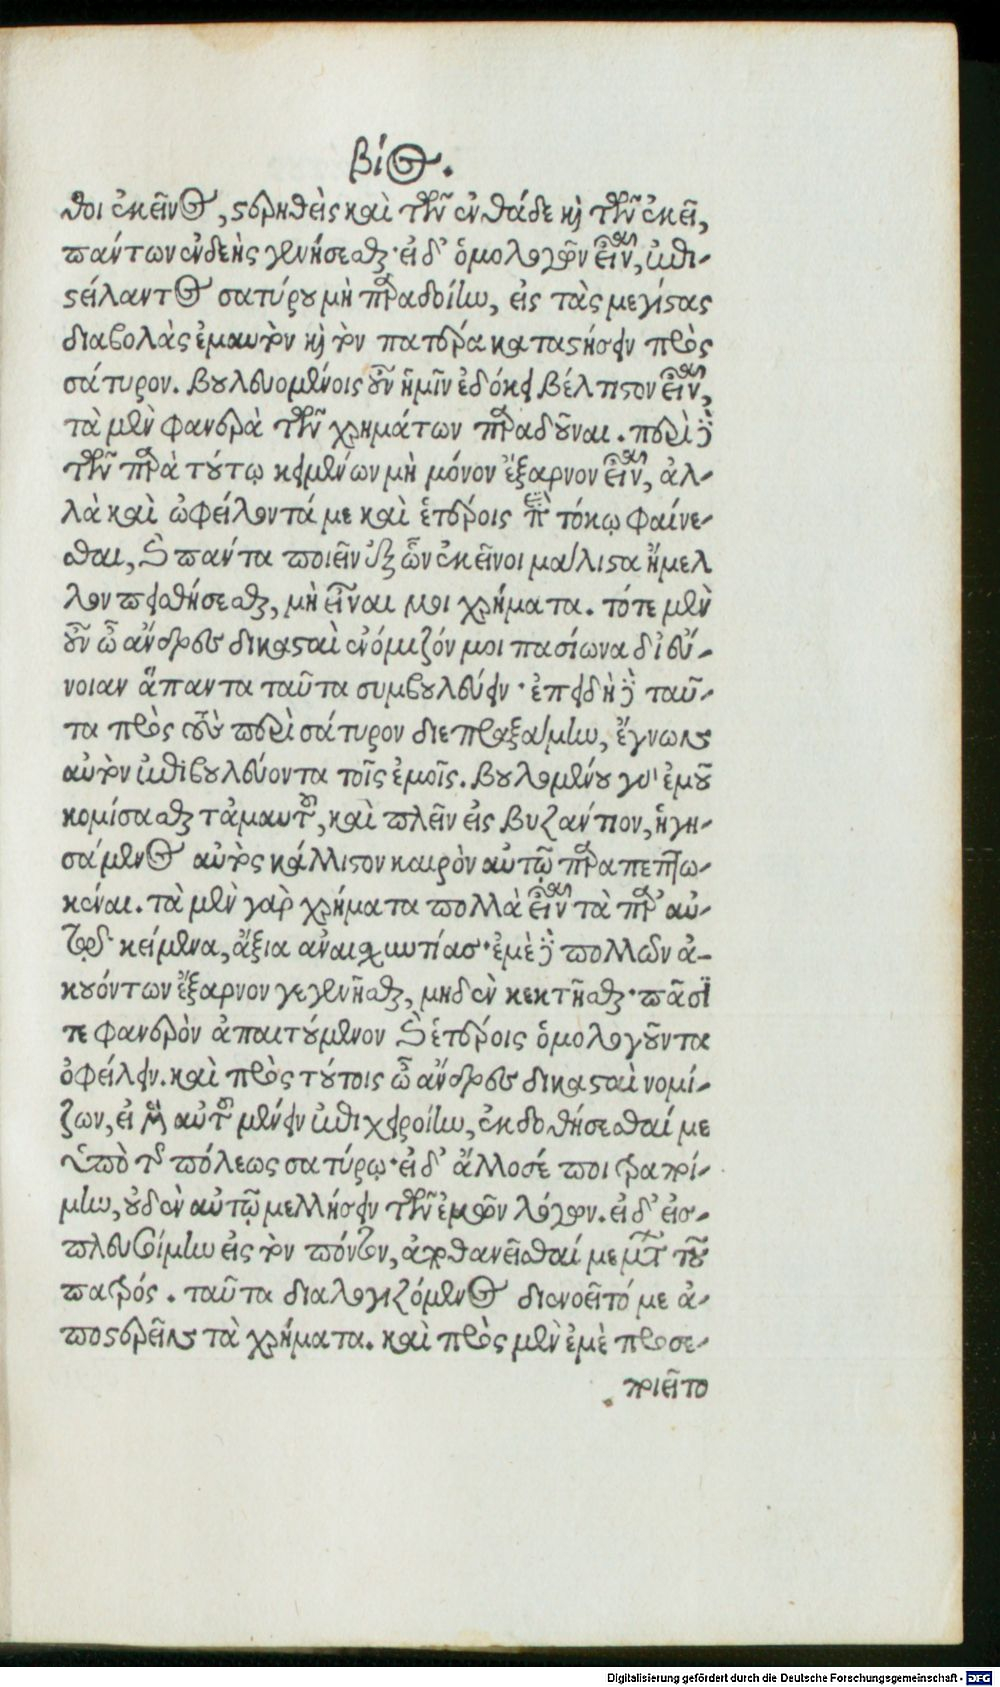 βίος.
θοι ἐκεῖνος, στερηθεὶς καὶ τῶν ἐνθάδε καὶ τῶν ἐκεῖ,
πάντων ἐνδεὴς γενήσεσθαι· εἰ δ' ὁμολογῶν εἶναι, ἐπι-
στείλαντος σατύρου μὴ παραδοίην, εἰς τὰς μεγίστας
διαβολὰς ἐμαυτὸν καὶ τὸν πατέρα καταστήσειν πρὸς
σάτυρον. βουλευομένοις οὖν ἡμῖν ἐδόκει βέλτιστον εἶναι,
τὰ μὲν φανερὰ τῶν χρημάτων παραδοῦναι. περὶ δὲ
τῶν παρὰ τούτῳ κειμένων μὴ μόνον ἔξαρνον εἶναι, ἀλ-
λὰ καὶ ὠφείλοντά με καὶ ἑτέροις ἐπὶ τόκῳ φαίνε-
σθαι, καὶ πάντα ποιεῖν ἐξ ὧν ἐκεῖνοι μάλιστα ἤμελ
λον πεισθήσεσθαι, μὴ εἶναι μοι χρήματα. τότε μὲν
οὖν ὦ ἄνδρες δικασταὶ ἐνόμιζόν μοι πασίωνα δι' εὔ-
νοιαν ἅπαντα ταῦτα συμβουλεύειν· ἐπειδὴ δὲ ταῦ-
τα πρὸς τοὺς περὶ σάτυρον διεπραξάμην, ἔγνων
αὐτὸν ἐπιβουλεύοντα τοῖς ἐμοῖς. βουλομένου γὰρ ἐμοῦ
κομίσασθαι τἀμαυτοῦ, καὶ πλεῖν εἰς βυζάντιον, ἡγη-
σάμενος οὗτος κάλλιστον καιρὸν αὑτῷ παραπεπτω-
κέναι. τὰ μὲν γὰρ χρήματα πολλὰ εἶναι τὰ παρ' αὐ-
τῷ κείμενα, ἄξια ἀναισχυντίας· ἐμὲ δὲ πολλῶν ἀ-
κουόντων ἔξαρνον γεγενῆσθαι, μηδὲν κεκτῆσθαι· πᾶσί
τε φανερὸν ἀπαιτούμενον καὶ ἑτέροις ὁμολογοῦντα
ὀφείλειν. καὶ πρὸς τούτοις ὦ ἄνδρες δικασταὶ νομί-
ζων, εἰ μὲν αὐτοῦ μένειν ἐπιχειροίην, ἐκδοθήσεσθαί με
ὑπὸ τῆς πόλεως σατύρῳ· εἰ δ' ἄλλοσέ ποι τραποί-
μην, οὐδὲν αὐτῷ μελλήσειν τῶν ἐμῶν λόγων. εἰ δ' εἰσ-
πλευσοίμην εἰς τὸν πόντον, ἀποθανεῖσθαί με μετὰ τοῦ
πατρός. ταῦτα διαλογιζόμενος διενοεῖτό με ἀ-
ποστερεῖν τὰ χρήματα. καὶ πρὸς μὲν ἐμὲ προσε-
ποιεῖτο
Digitalisierung gefördert durch die Deutsche Forschungsgemeinschaft - DFG